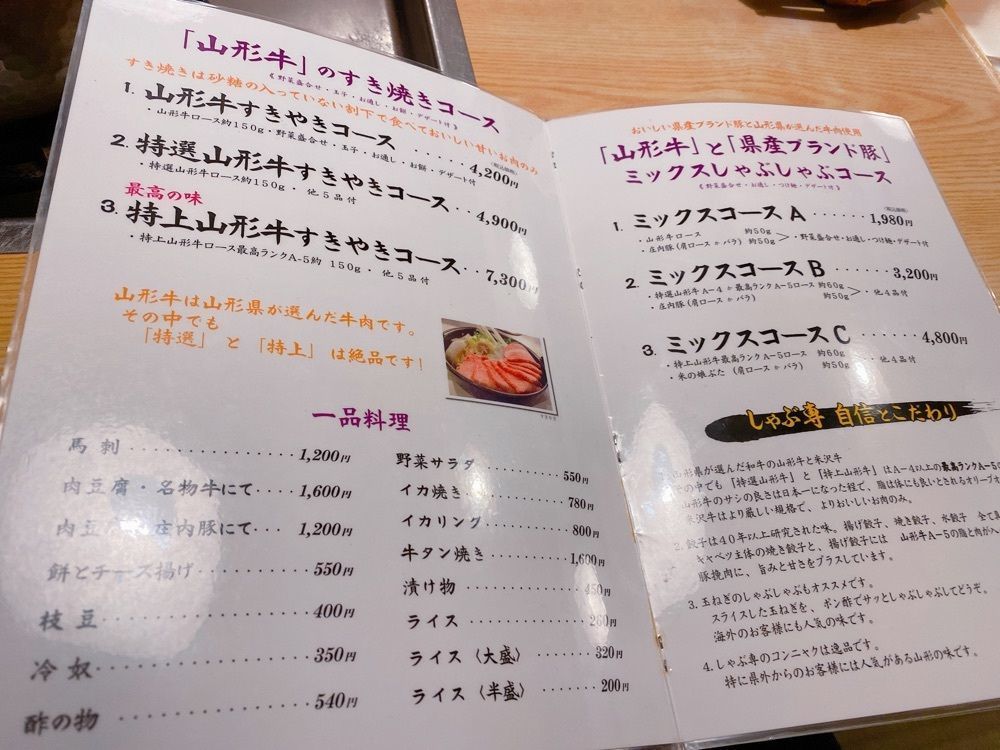 「山形牛」のすき焼きコース
《 野菜盛合せ・玉子・お通し・お餅・デザート付 》
すき焼きは砂糖の入っていない割下で食べておいしい甘いお肉のみ
1. 山形牛すきやきコース ・・・・・ 4,200円
・山形牛ロース約150g・野菜盛合せ・玉子・お通し・お餅・デザート付
2. 特選山形牛すきやきコース ・・ 4,900円
・特選山形牛ロース約150g・ 他5品付
最高の味
3. 特上山形牛すきやきコース ・・ 7,300円
・特上山形牛ロース最高ランクA-5約 150g・ 他5品付
山形牛は山形県が選んだ牛肉です。
その中でも
「特選」と「特上」は絶品です!
一品料理
馬刺 ・・・・・ 1,200円
肉豆腐・名物牛にて ・・・・ 1,600円
肉豆 庄内豚にて ・・・ 1,200円
餅とチーズ揚げ ・・・・・ 550円
枝豆 ・・・・・ 400円
冷奴 ・・・・・ 350円
酢の物 ・・・・・ 540円
野菜サラダ ・・・・・ 550円
イカ焼き ・・・・・ 780円
イカリング ・・・・・ 800円
牛タン焼き ・・・・・ 1,600円
漬け物 ・・・・・ 450円
ライス ・・・・・ 260円
ライス〈大盛〉 ・・・・・ 320円
ライス〈半盛〉 ・・・・・ 200円
おいしい県産ブランド豚と山形県が選んだ牛肉使用
「山形牛」と「県産ブランド豚」
ミックスしゃぶしゃぶコース
《 野菜盛合せ・お通し・つけ麺・デザート付 》
1. ミックスコースA ・・・・・・ 1,980円
・山形牛ロース 約50g
・庄内豚(肩ロース・バラ) 約50g > ・野菜盛合せ・お通し・つけ麺・デザート付
2. ミックスコースB ・・・・・・ 3,200円
・特選山形牛A-4・最高ランクA-5ロース 約60g
・庄内豚(肩ロース・バラ) 約50g > ・他4品付
3. ミックスコースC ・・・・・・ 4,800円
・特上山形牛最高ランクA-5ロース 約60g
・米の娘ぶた(肩ロース・バラ) 約50g > ・他4品付
しゃぶ専 自信とこだわり
山形県が選んだ和牛の山形牛と米沢牛
その中でも「特選山形牛」と「特上山形牛」はA-4以上の最高ランクA-5の
山形牛のサシの良さは日本一になった程で、脂は体にも良いとされるオリーブオ
米沢牛はより厳しい規格で、よりおいしいお肉のみ。
2. 餃子は40年以上研究された味。揚げ餃子、焼き餃子、水餃子 全て
キャベツ主体の焼き餃子と、揚げ餃子には 山形牛A-5の脂と肉が入
豚挽肉に、旨みと甘さをプラスしています。
3. 玉ねぎのしゃぶしゃぶもオススメです。
スライスした玉ねぎを、ポン酢でサッとしゃぶしゃぶしてどうぞ。
海外のお客様にも人気の味です。
4. しゃぶ専のコンニャクは逸品です。
特に県外からのお客様には人気がある山形の味です。